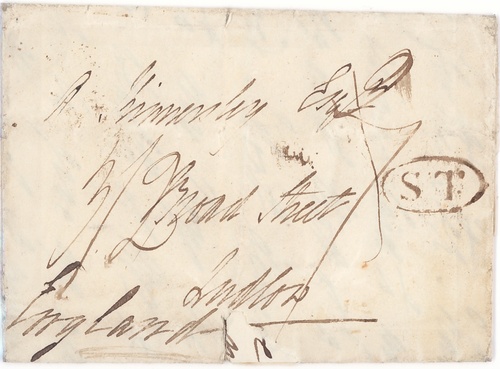 Kinnersley Esqr
Broad Street
S.T.
Ludlow
England